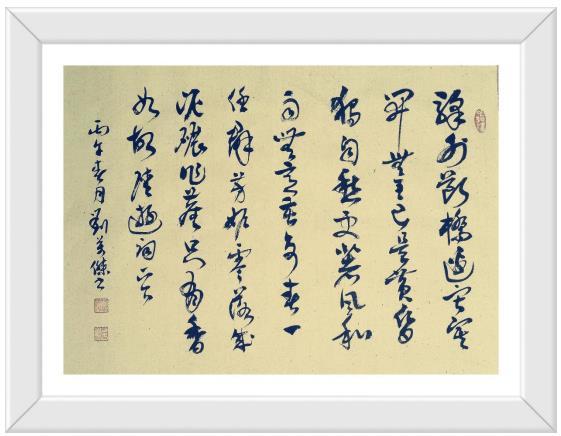 驛外斷橋邊寂寞
開無主已是黃昏
獨自愁更著風和
雨無意苦爭春一
任群芳妒零落成
泥碾作塵只有香
如故陸遊詞
丙午春月劉